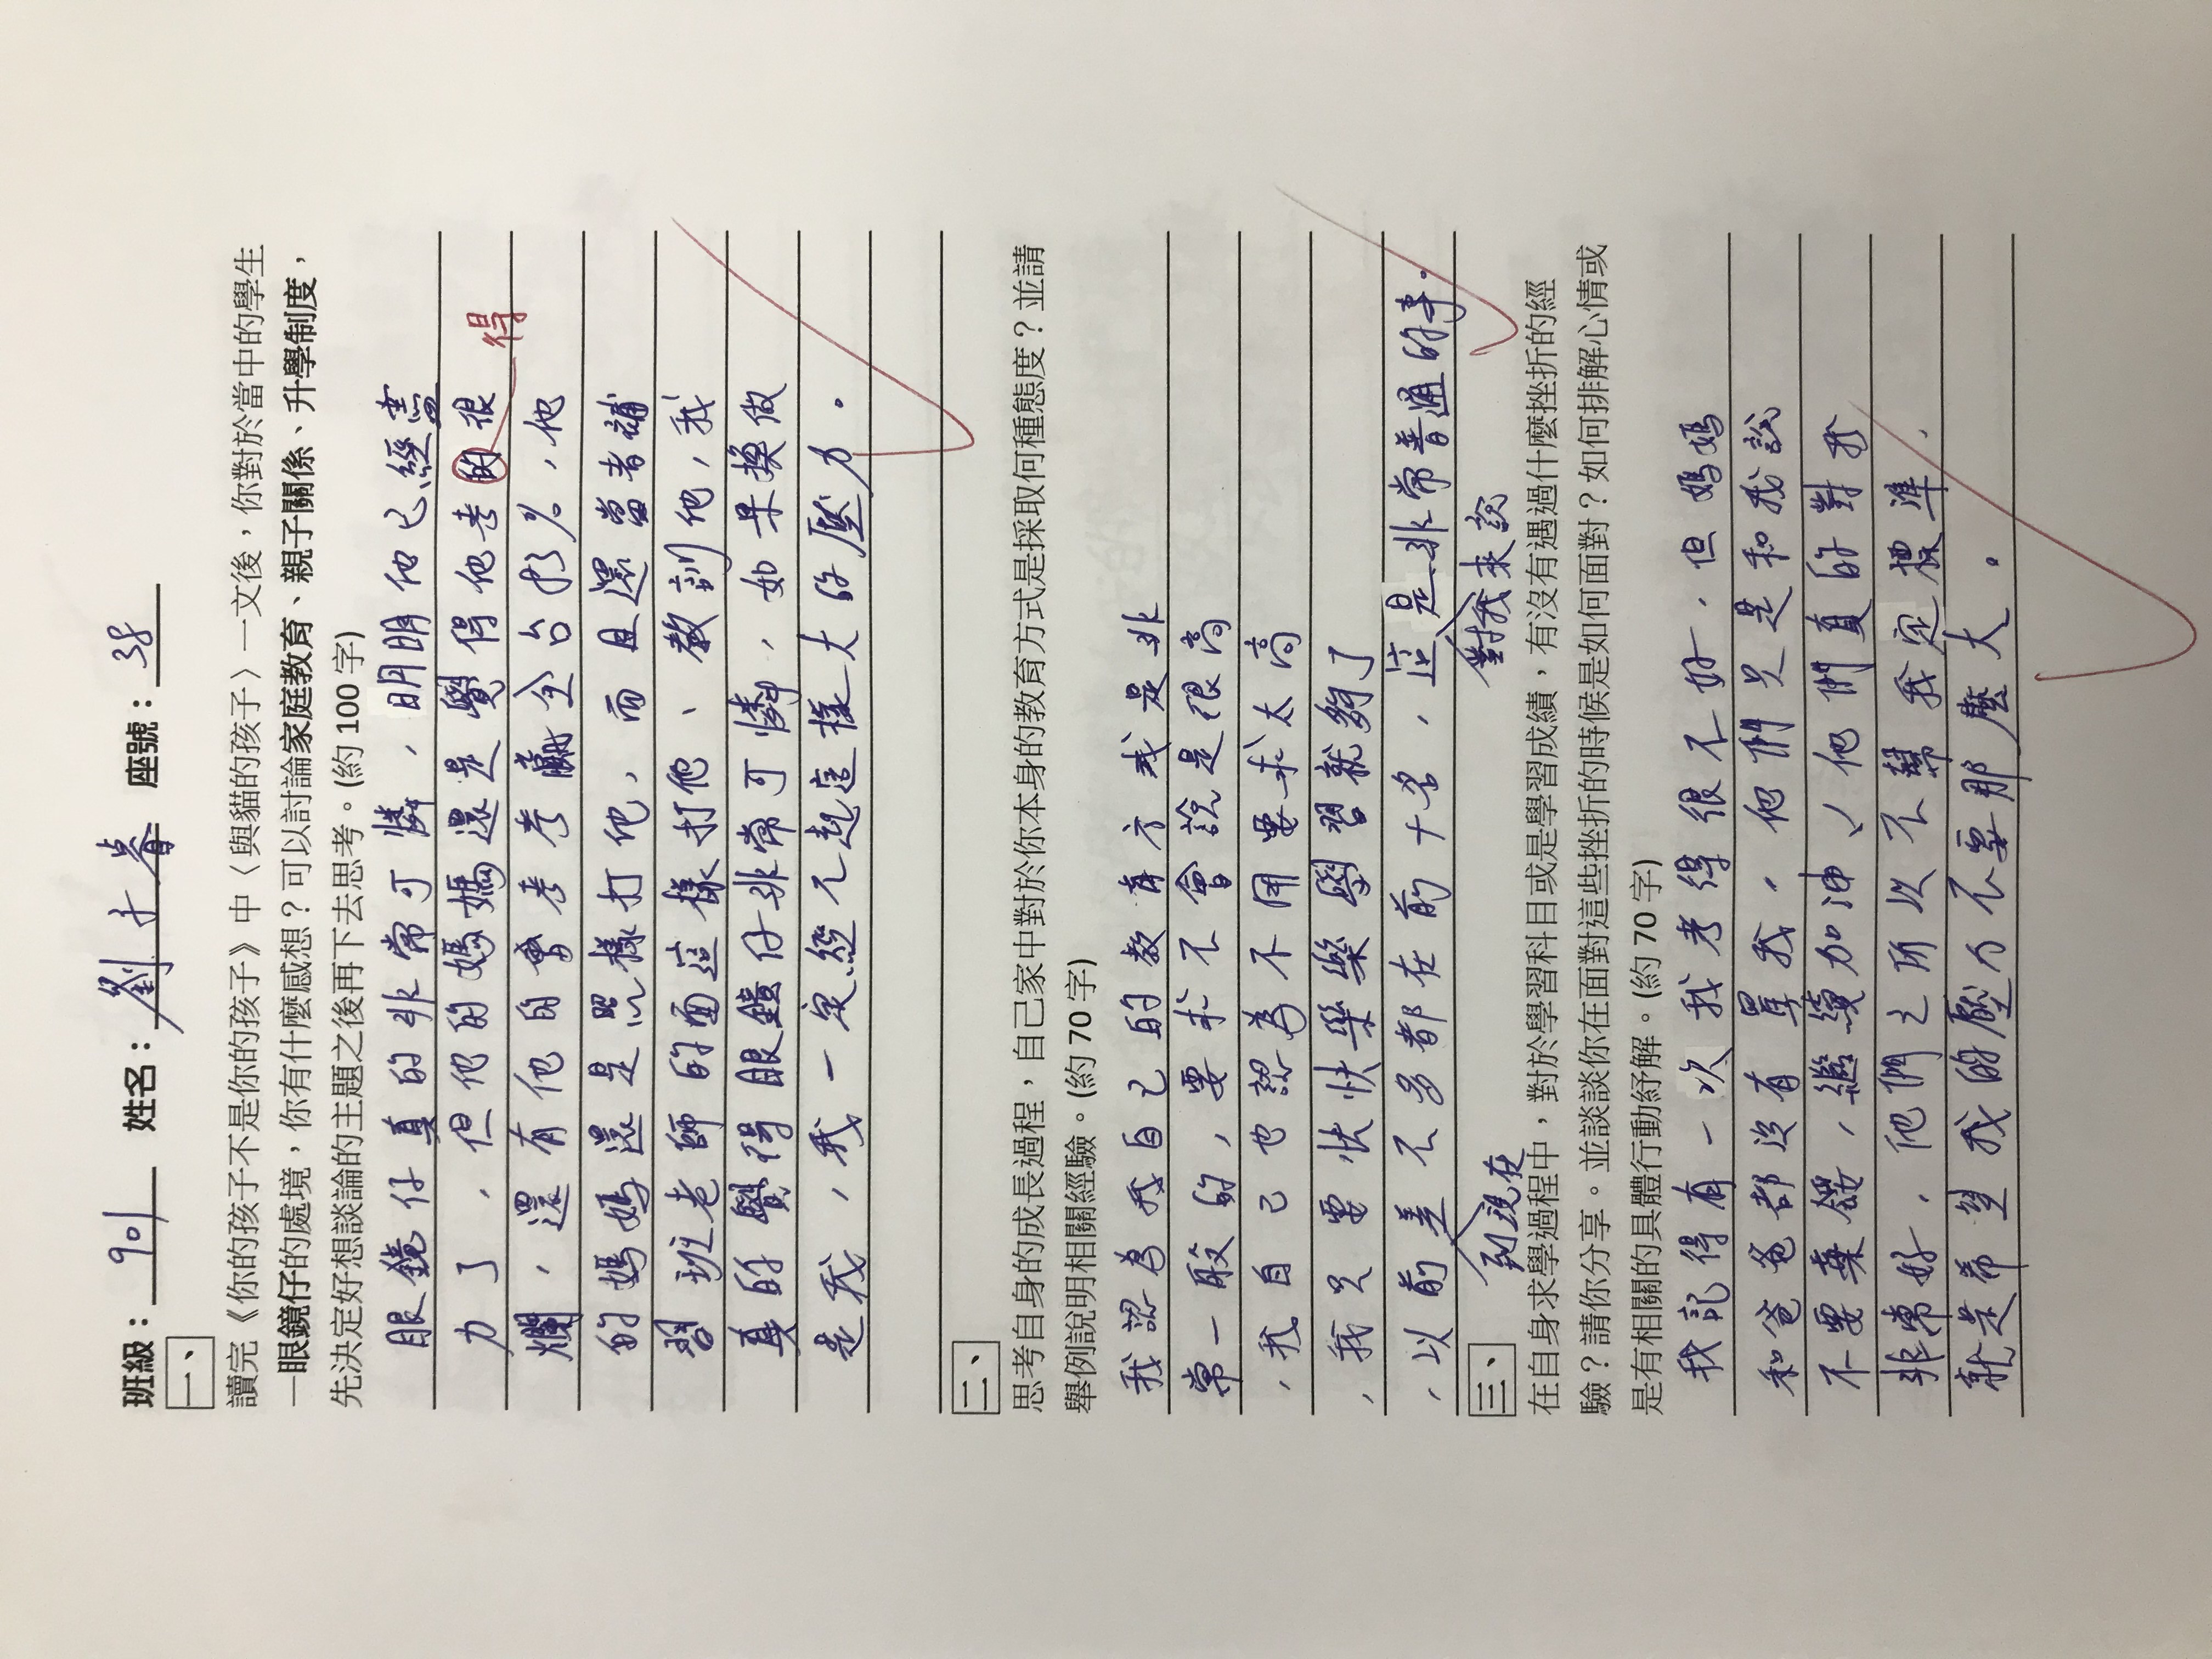 班級：901 姓名：劉士睿 座號：38
一、
讀完《你的孩子不是你的孩子》中〈與貓的孩子〉一文後，你對於當中的學生
—眼鏡仔的處境，你有什麼感想？可以討論家庭教育、親子關係、升學制度，
先決定好想談論的主題之後再下去思考。(約 100 字)
眼鏡仔真的非常可憐，明明他已經盡
力了，但他的媽媽還是覺得他考的很
得
爛，還有他的會考考贏全台，他
的媽媽還是照樣打他，而且還當著補
習班老師的面這樣打他、教訓他，我
真的覺得眼鏡仔非常可憐，如果換做
是我，我一定經不起這樣大的壓力。
二、
思考自身的成長過程，自己家中對於你本身的教育方式是採取何種態度？並請
舉例說明相關經驗。(約 70 字)
我認為我自己的教育方式是非
常一般的，要求不會說是很高
，我自己也認為不用要求太高
，我只要快快樂樂學習就夠了
，以前差不多都在前十名，這是非常普通的事。
到現在 對我來說
三、
在自身求學過程中，對於學習科目或是學習成績，有沒有遇過什麼挫折的經
驗？請你分享。並談談你在面對這些挫折的時候是如何面對？如何排解心情或
是有相關的具體行動紓解。(約 70 字)
我記得有一次我考得很不好，但媽媽
和爸爸都沒有罵我，他們只是和我說
不要棄餒，繼續加油，他們真的對我
非常好，他們之所以不幫我定標準，
就是希望我的壓力不要那麼大。